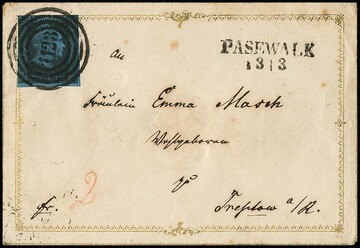 PASEWALK
13|3
An
Fräulein Emma Masch
Wohlgeboren
zu
fr.
Treptow a/R.
2